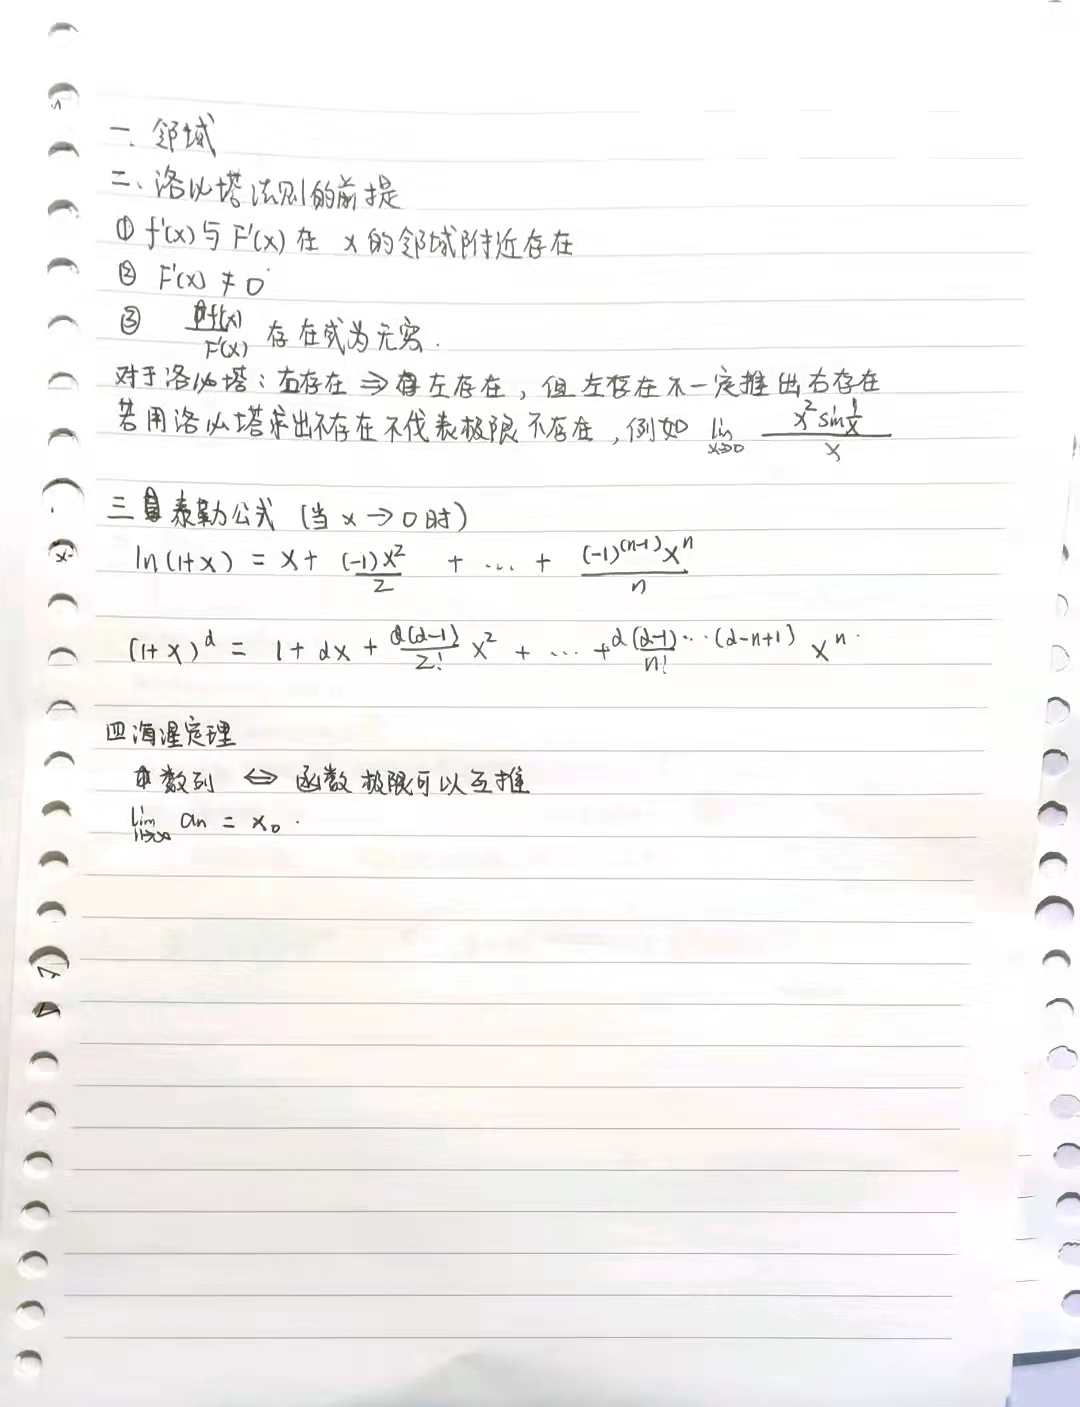 一、邻域
二、洛必塔法则的前提
① f'(x)与F'(x)在 x的邻域附近存在
② F'(x) ≠ 0
③ f'(x)/F'(x) 存在或为无穷.
对于洛必塔:右存在 ⇒ 左存在,但左存在不一定推出右存在
若用洛必塔求出不存在不代表极限不存在,例如 lim x→0 x² sin 1/x / x
三 泰勒公式 (当 x → 0时)
ln(1+x) = x + (-1)x²/2 + ... + (-1)^(n-1) x^n / n
(1+x)^α = 1 + αx + α(α-1)/2! x² + ... + α(α-1)...(α-n+1)/n! x^n
四 海涅定理
数列 ⇔ 函数 极限可以互推
lim n→∞ an = x₀.